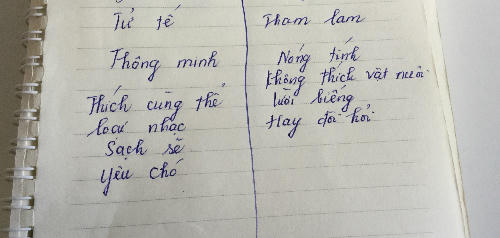 Tử tế
Thông minh
Thích cùng thể
loại nhạc
Sạch sẽ
Yêu chó
Tham lam
Nóng tính
Không thích vật nuôi
Lười biếng
Hay đòi hỏi